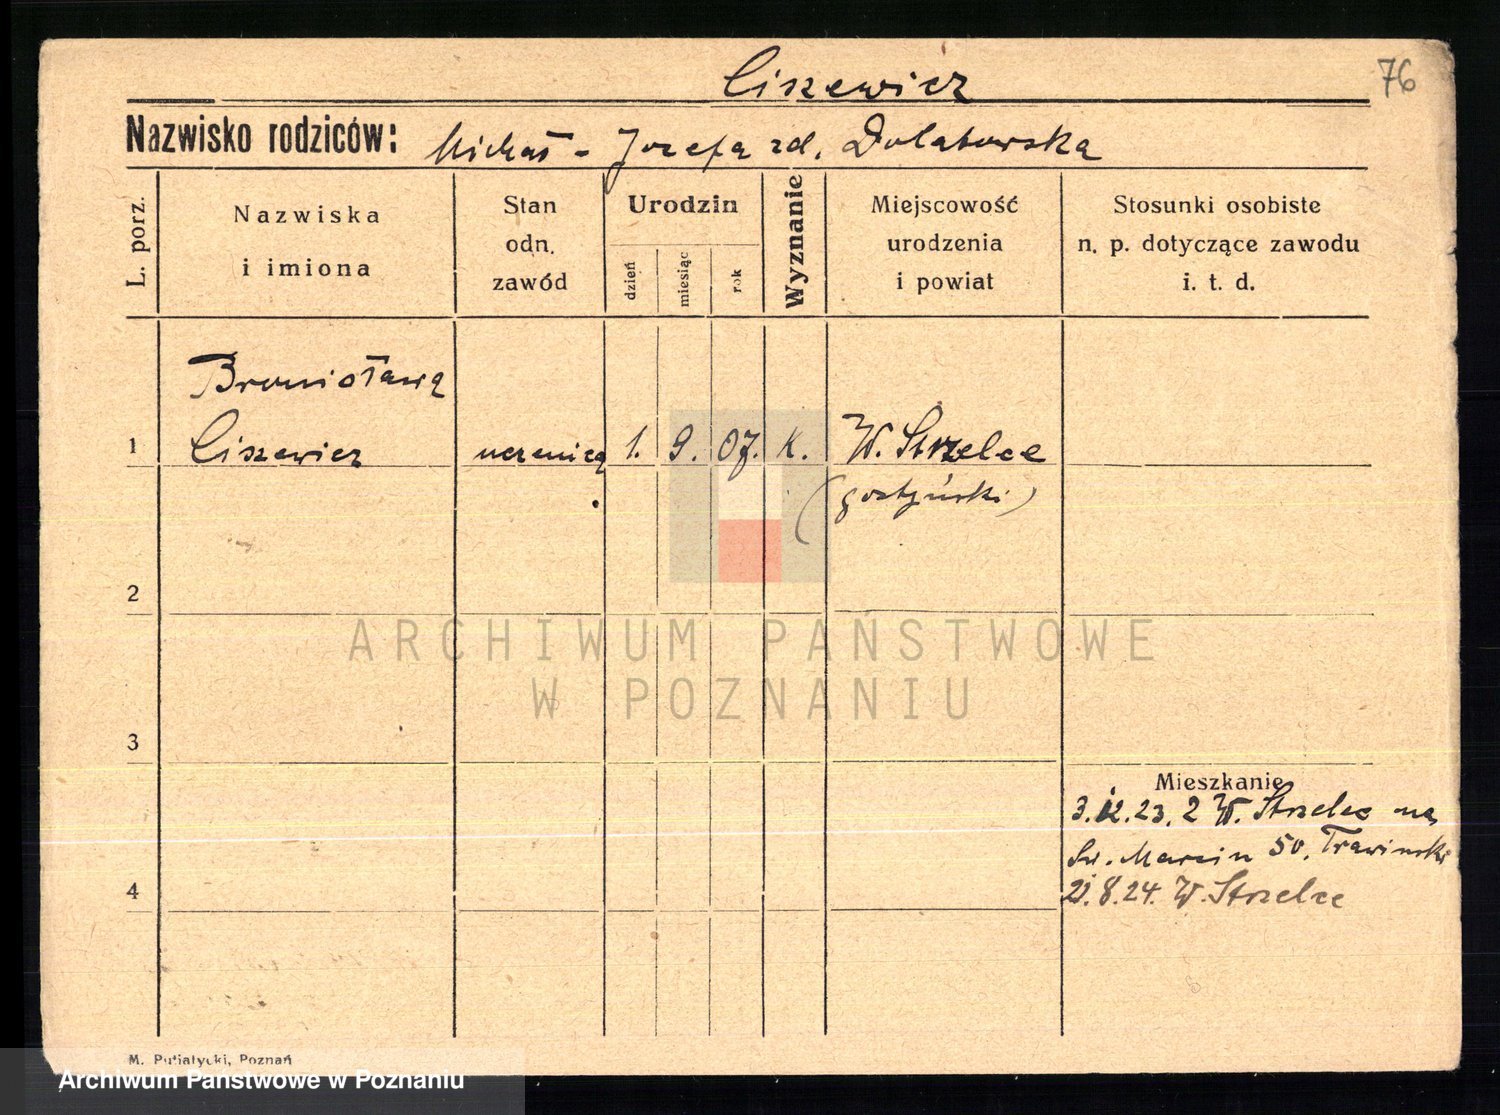 Ciszewicz
76
Nazwisko rodziców: Michał - Jozefa zd. Dolatowska
L. porz.
Nazwiska
i imiona
Stan
odn.
zawód
Urodzin
dzień
miesiąc
rok
Wyznanie
Miejscowość
urodzenia
i powiat
Stosunki osobiste
n. p. dotyczące zawodu
i. t. d.
Bronisława
1 Ciszewicz uczenica 1. 9. 07. K. W. Strzelce
(gostyński)
2
ARCHIWUM PAŃSTWOWE
W POZNANIU
3
Mieszkanie
3.12.23. z W. Strzelec na
Św. Marcin 50. Trawiński
4
21.8.24. W. Strzelce
M. Putiatycki, Poznań
Archiwum Państwowe w Poznaniu